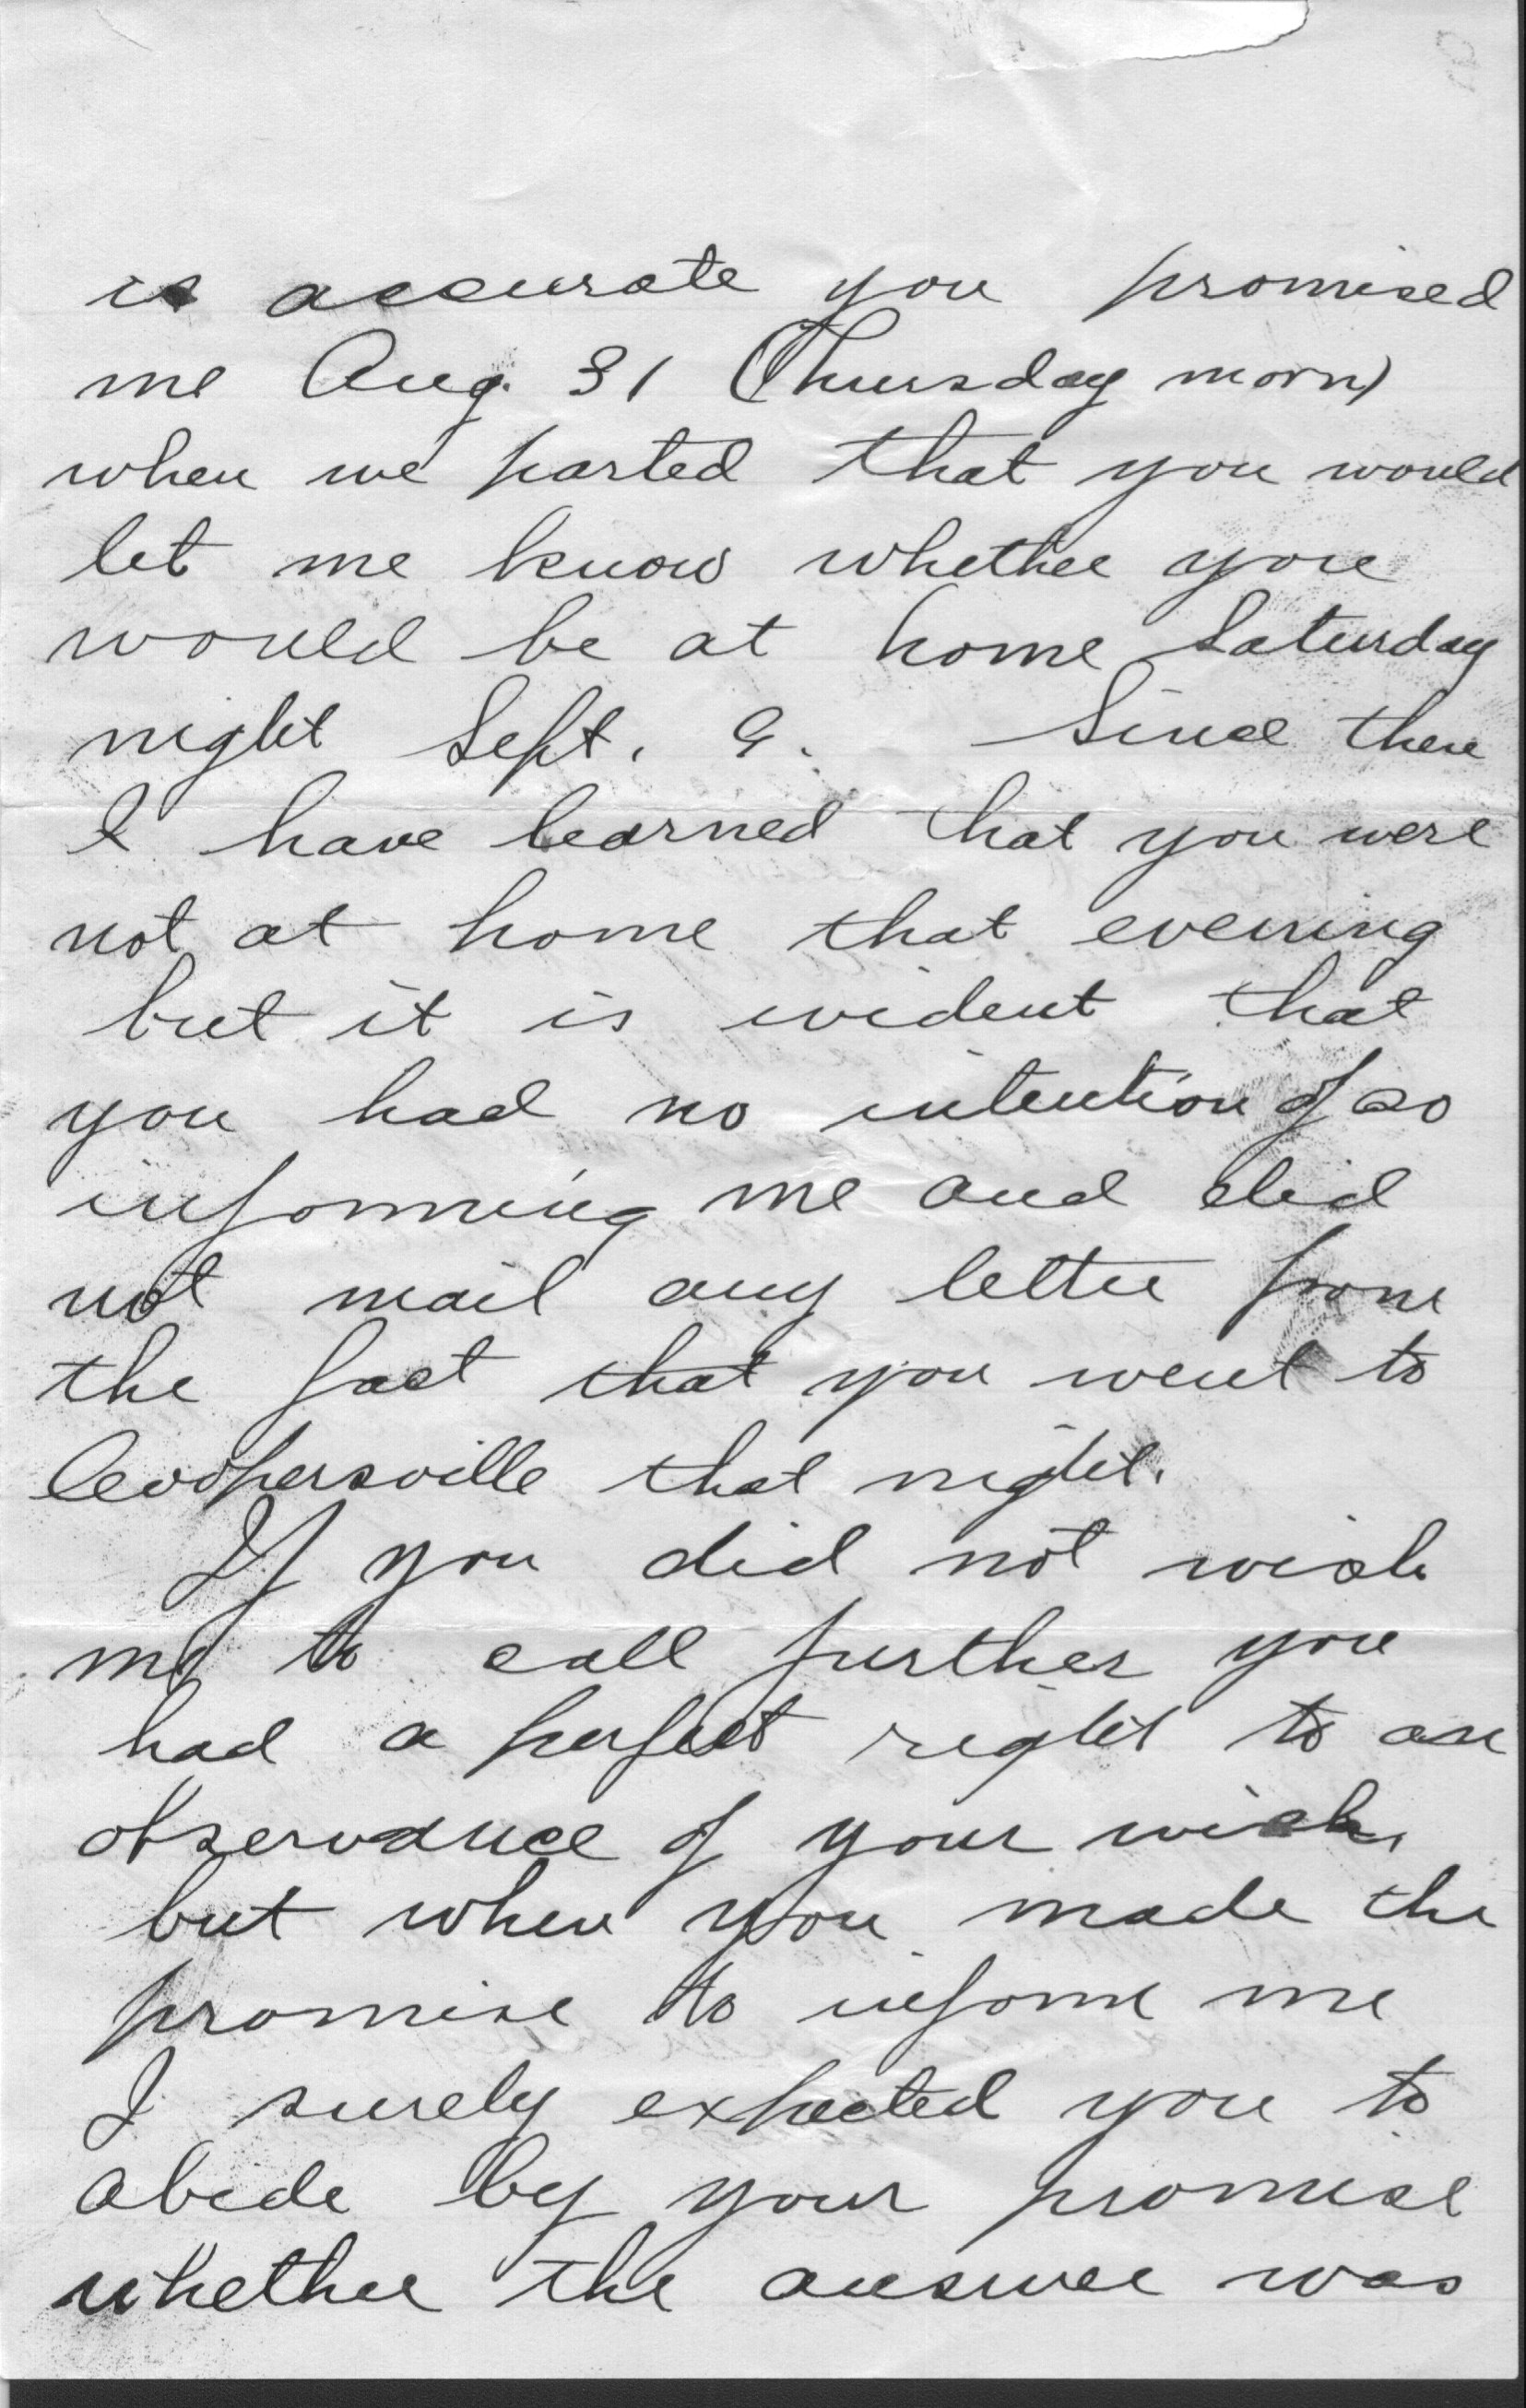 is accurate you promised
me Aug. 31 (Thursday morn)
when we parted that you would
let me know whether you
would be at home Saturday
night Sept. 9. Since then
I have learned that you were
not at home that evening
but it is evident that
you had no intention of so
informing me and did
not mail any letter from
the fact that you went to
Coopersville that night.
If you did not wish
me to call further you
had a perfect right to an
observance of your wish,
but when you made the
promise to inform me
I surely expected you to
abide by your promise
whether the answer was